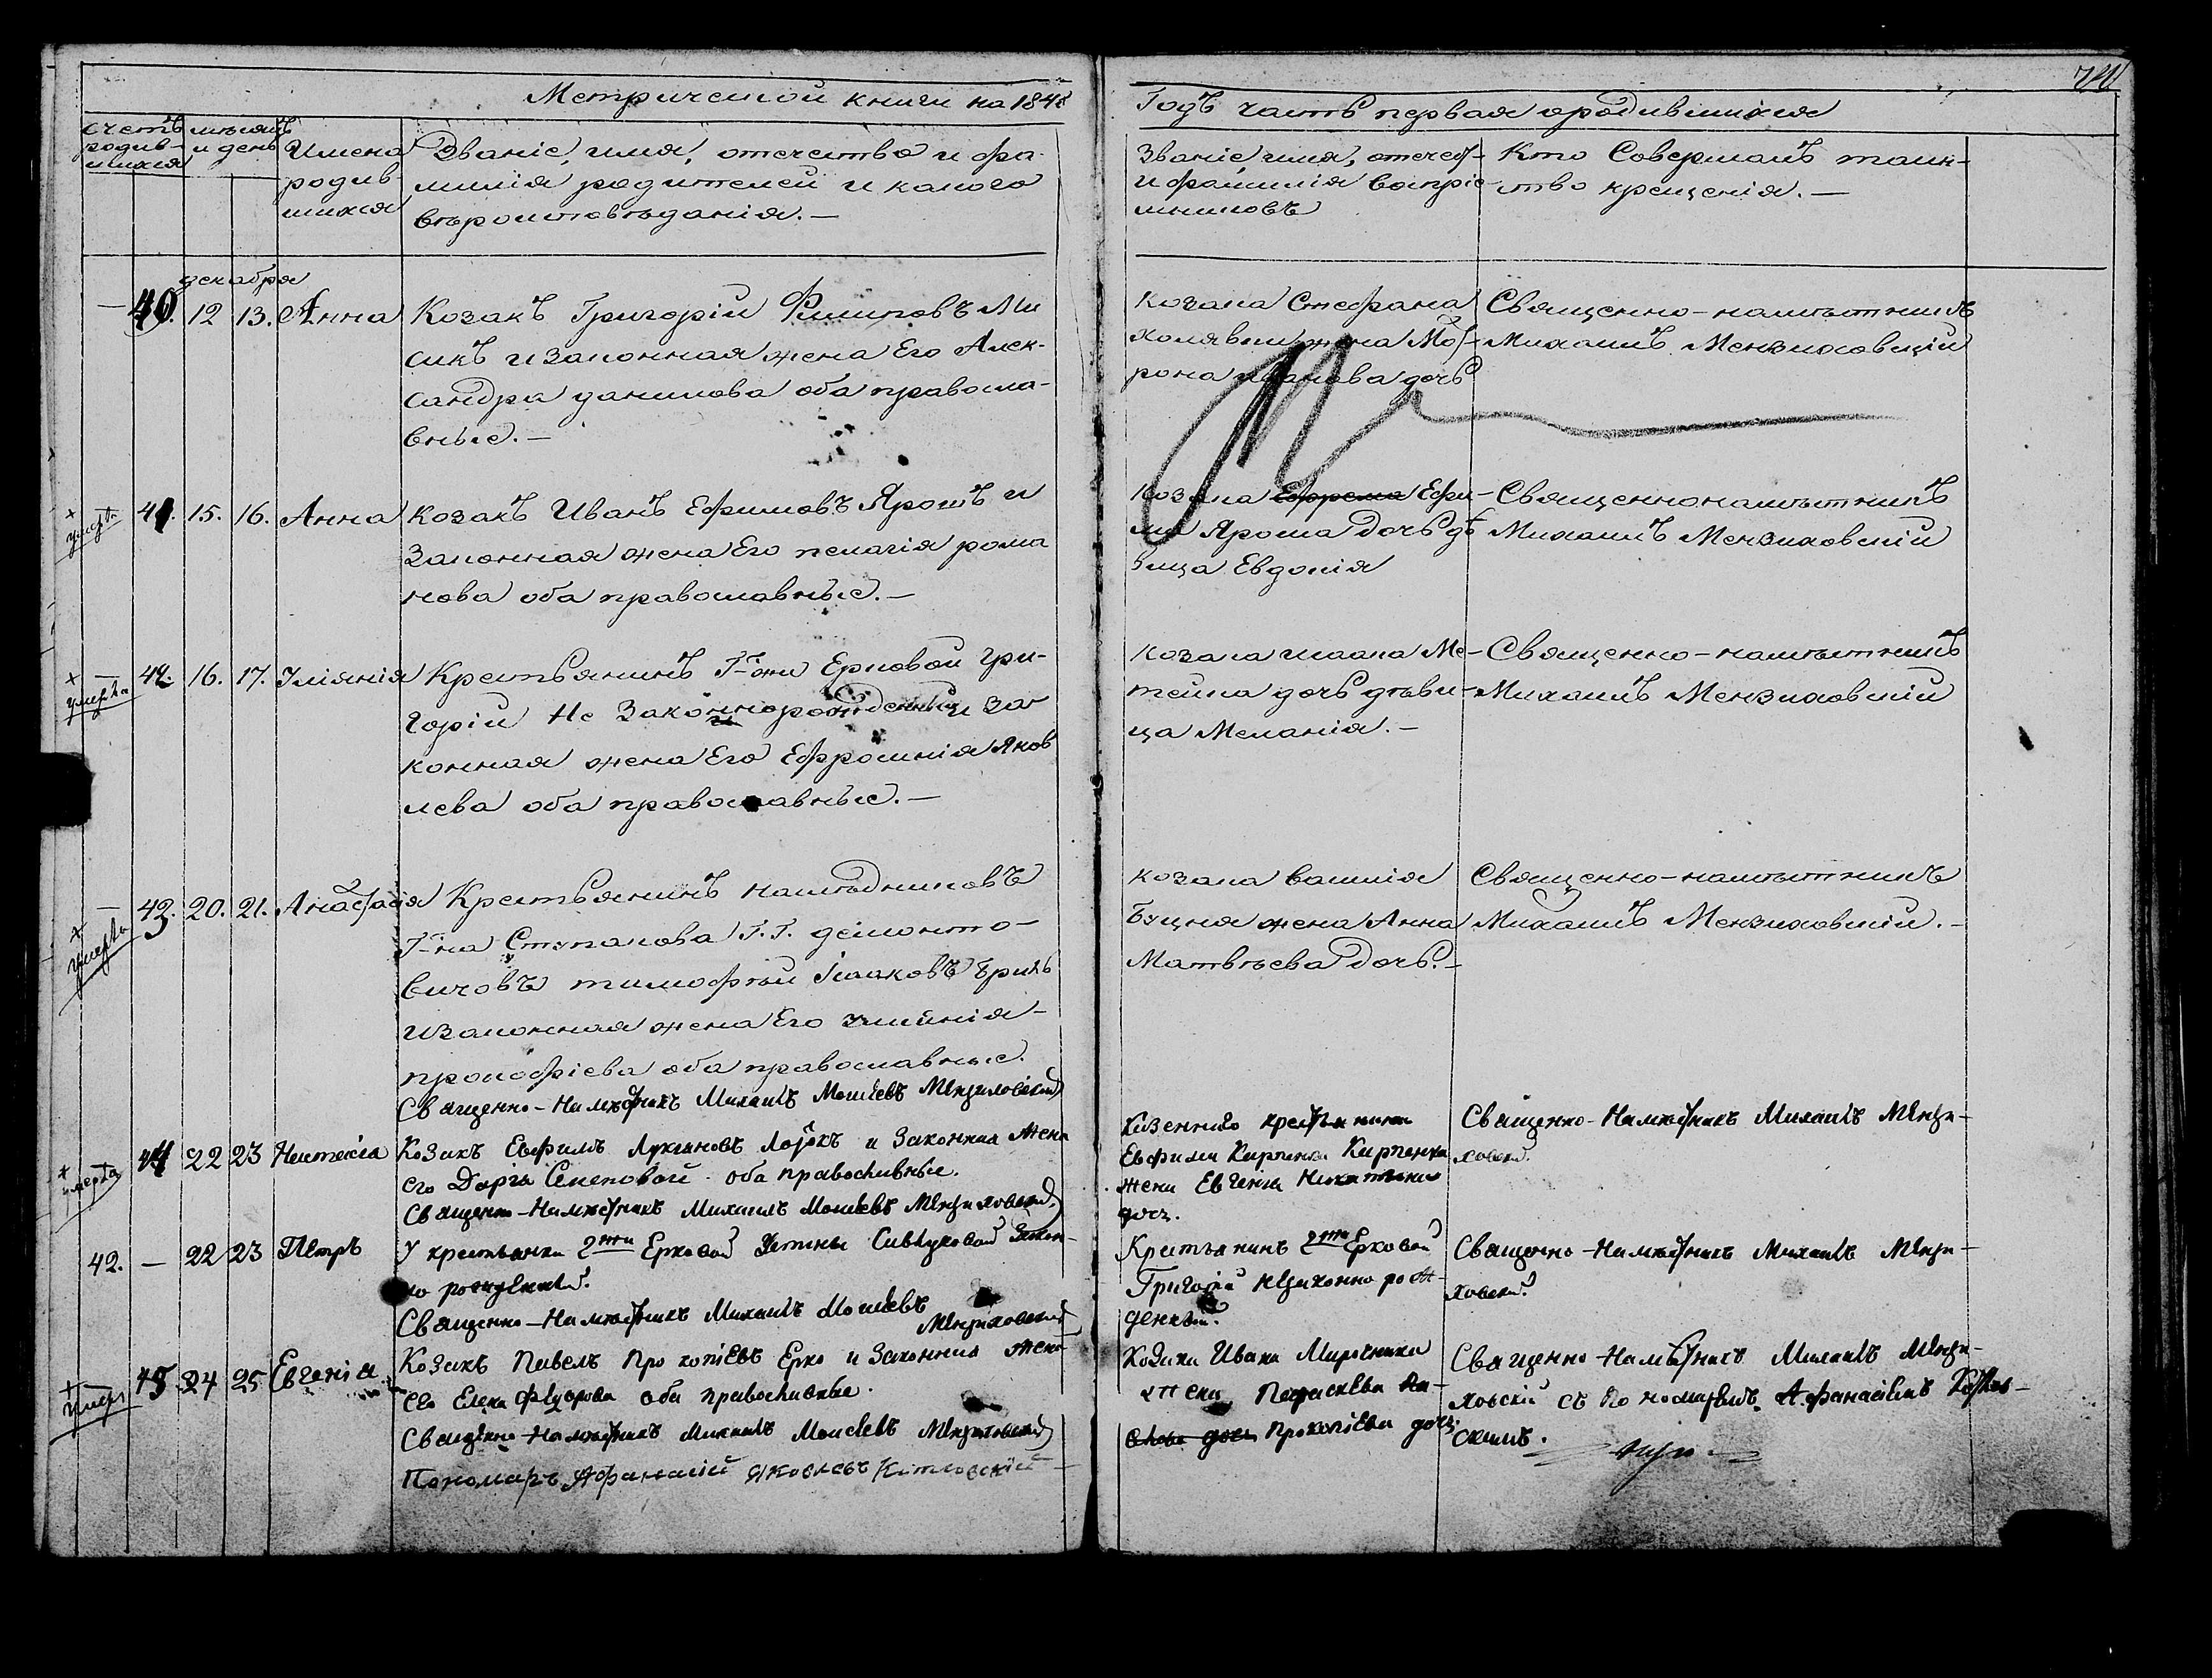 Метрической книги на 184
Годъ часть первая ородившихся
счетъ родив-шихся
мѣсяцъ и день
Имена родив шихся
Званіе, имя, отечество и фа-
милія родителей и какого
вѣроисповѣданія. —
Званіе имя, отечес-
и фамилія воспріе-
мниковъ
Кто Совершалъ таин-
ство крещенія. —
декабря
— 40. 12 13. Анна
Козакъ Григорій Филиповъ Ми
сикъ и законная жена Его Алек-
сандра данилова оба правосла-
вные. —
козака Стефана
жена Мот-
рона иванова дочь
Священно-намѣстникъ
Михаилъ Мензиховскій
умерла 41. 15. 16. Анна
Козакъ Иванъ Ефимовъ Ярошъ и
Законная жена Его пелагія рома
нова оба православные. —
козака Ефрема Ефи-
ма Яроша дочь дѣ
вица Евдокія
Священнонамѣстникъ
Михаилъ Мензиховскій
умерла 42. 16. 17. Іуліянія
Крестьянинъ Г-жи Ерковой Гри-
горій Не Законнорожденный и за
конная жена Его Ефросинія Яков
лева оба православные. —
козака исаака Ме-
дочь дѣви-
ца Меланія. —
Священно-намѣстникъ
Михаилъ Мензиховскій
умерла 43. 20. 21. Анастасія
Крестьянинъ наслѣдниковъ
Г-на Ступакова Г. Г.
вичовъ тимофѣй Исааковъ
и законная жена Его
прокофіева оба православные.
Священно-Намѣстникъ Михаилъ Моисеевъ Мензиховский
козака василія
жена Анна
Матвѣева дочь. —
Священно-намѣстникъ
Михаилъ Мензиховскій. —
умерла 44 22 23
Козакъ Евфимъ Лукіяновъ и Законная Жена
его Дарія Семенова оба православные.
Священно-Намѣстникъ Михаилъ Моисеевъ Мензиховский
Казеннаго крестьянина
Евфима Кирпенка Кирпенка
жена Евгенія Никитина
дочь.
Священно-Намѣстникъ Михаилъ Мензи-
ховский.
42. — 22 23 Петръ
У крестьянки Г-жи Ерковой Устины Савчуковой Закон-
но рожденный.
Священно-Намѣстникъ Михаилъ Моисеевъ
Мензиховский
Крестьянинъ Г-жи Ерковой
Григорій Незаконно рож-
денный.
Священно-Намѣстникъ Михаилъ Мензи-
ховский
умер 45 24 25 Евгенія
Козакъ Павелъ Прокопіевъ Ерко и Законная жена
его Елена Федорова оба православные.
Священно-Намѣстникъ Михаилъ Моисеевъ Мензиховский
Пономарь Афанасій Яковлевъ
Козака Ивана Мирошника
жена Параскева
дочь Прокопіева дочь
Священно-Намѣстникъ Михаилъ Мензи-
ховскій съ Пономаремъ Афанасіемъ
скимъ.